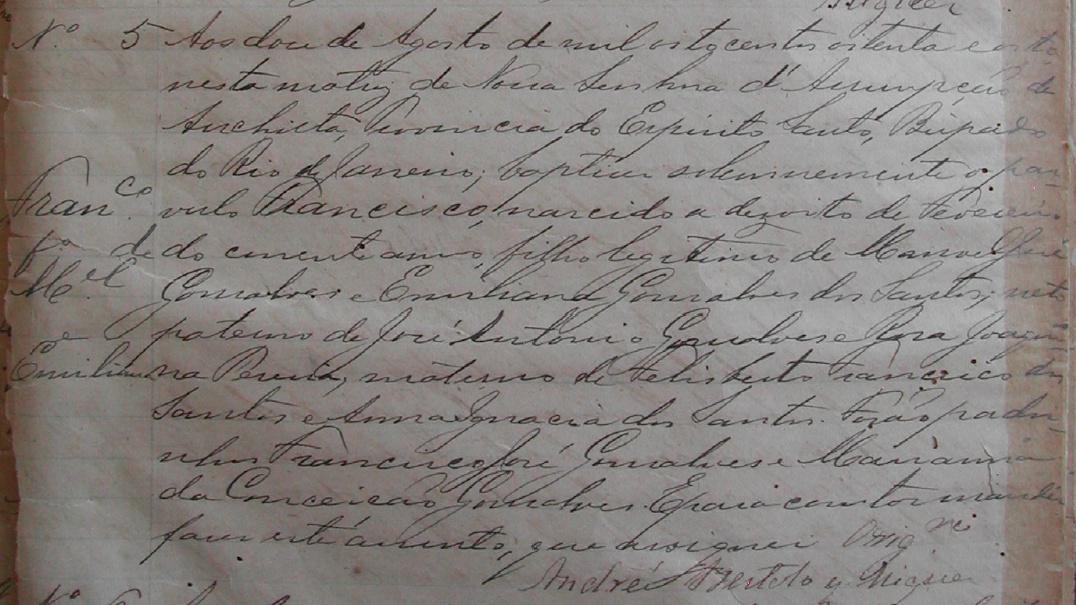 Nº 5 Aos doze de Agosto de mil oitocentos oitenta e oito
nesta matriz de Nossa Senhora d'Assumpção de
Anchieta, Provincia do Espirito Santo, Bispado
do Rio de Janeiro, baptizei solemnemente o par-
Franco. vulo Francisco, nascido a dezoito de Fevereiro
fo de do corrente anno, filho legitimo de Manoel José
Mel Gonsalves e Emiliana Gonsalves dos Santos; neto
e paterno de José Antonio Gonsalves e Rosa Joaqui-
Emiliana na Pereira, materno de Felisberto Francisco dos
Santos e Anna Ignacia dos Santos. Forão padri-
nhos Francisco José Gonsalves e Marianna
da Conceição Gonsalves. E para constar mandei
fazer este assento, que assignei
André